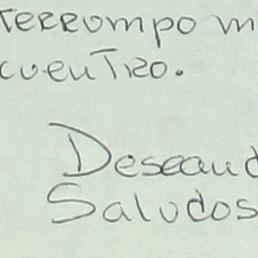 terrumpo m
cuentro.
Deseand
Saludos